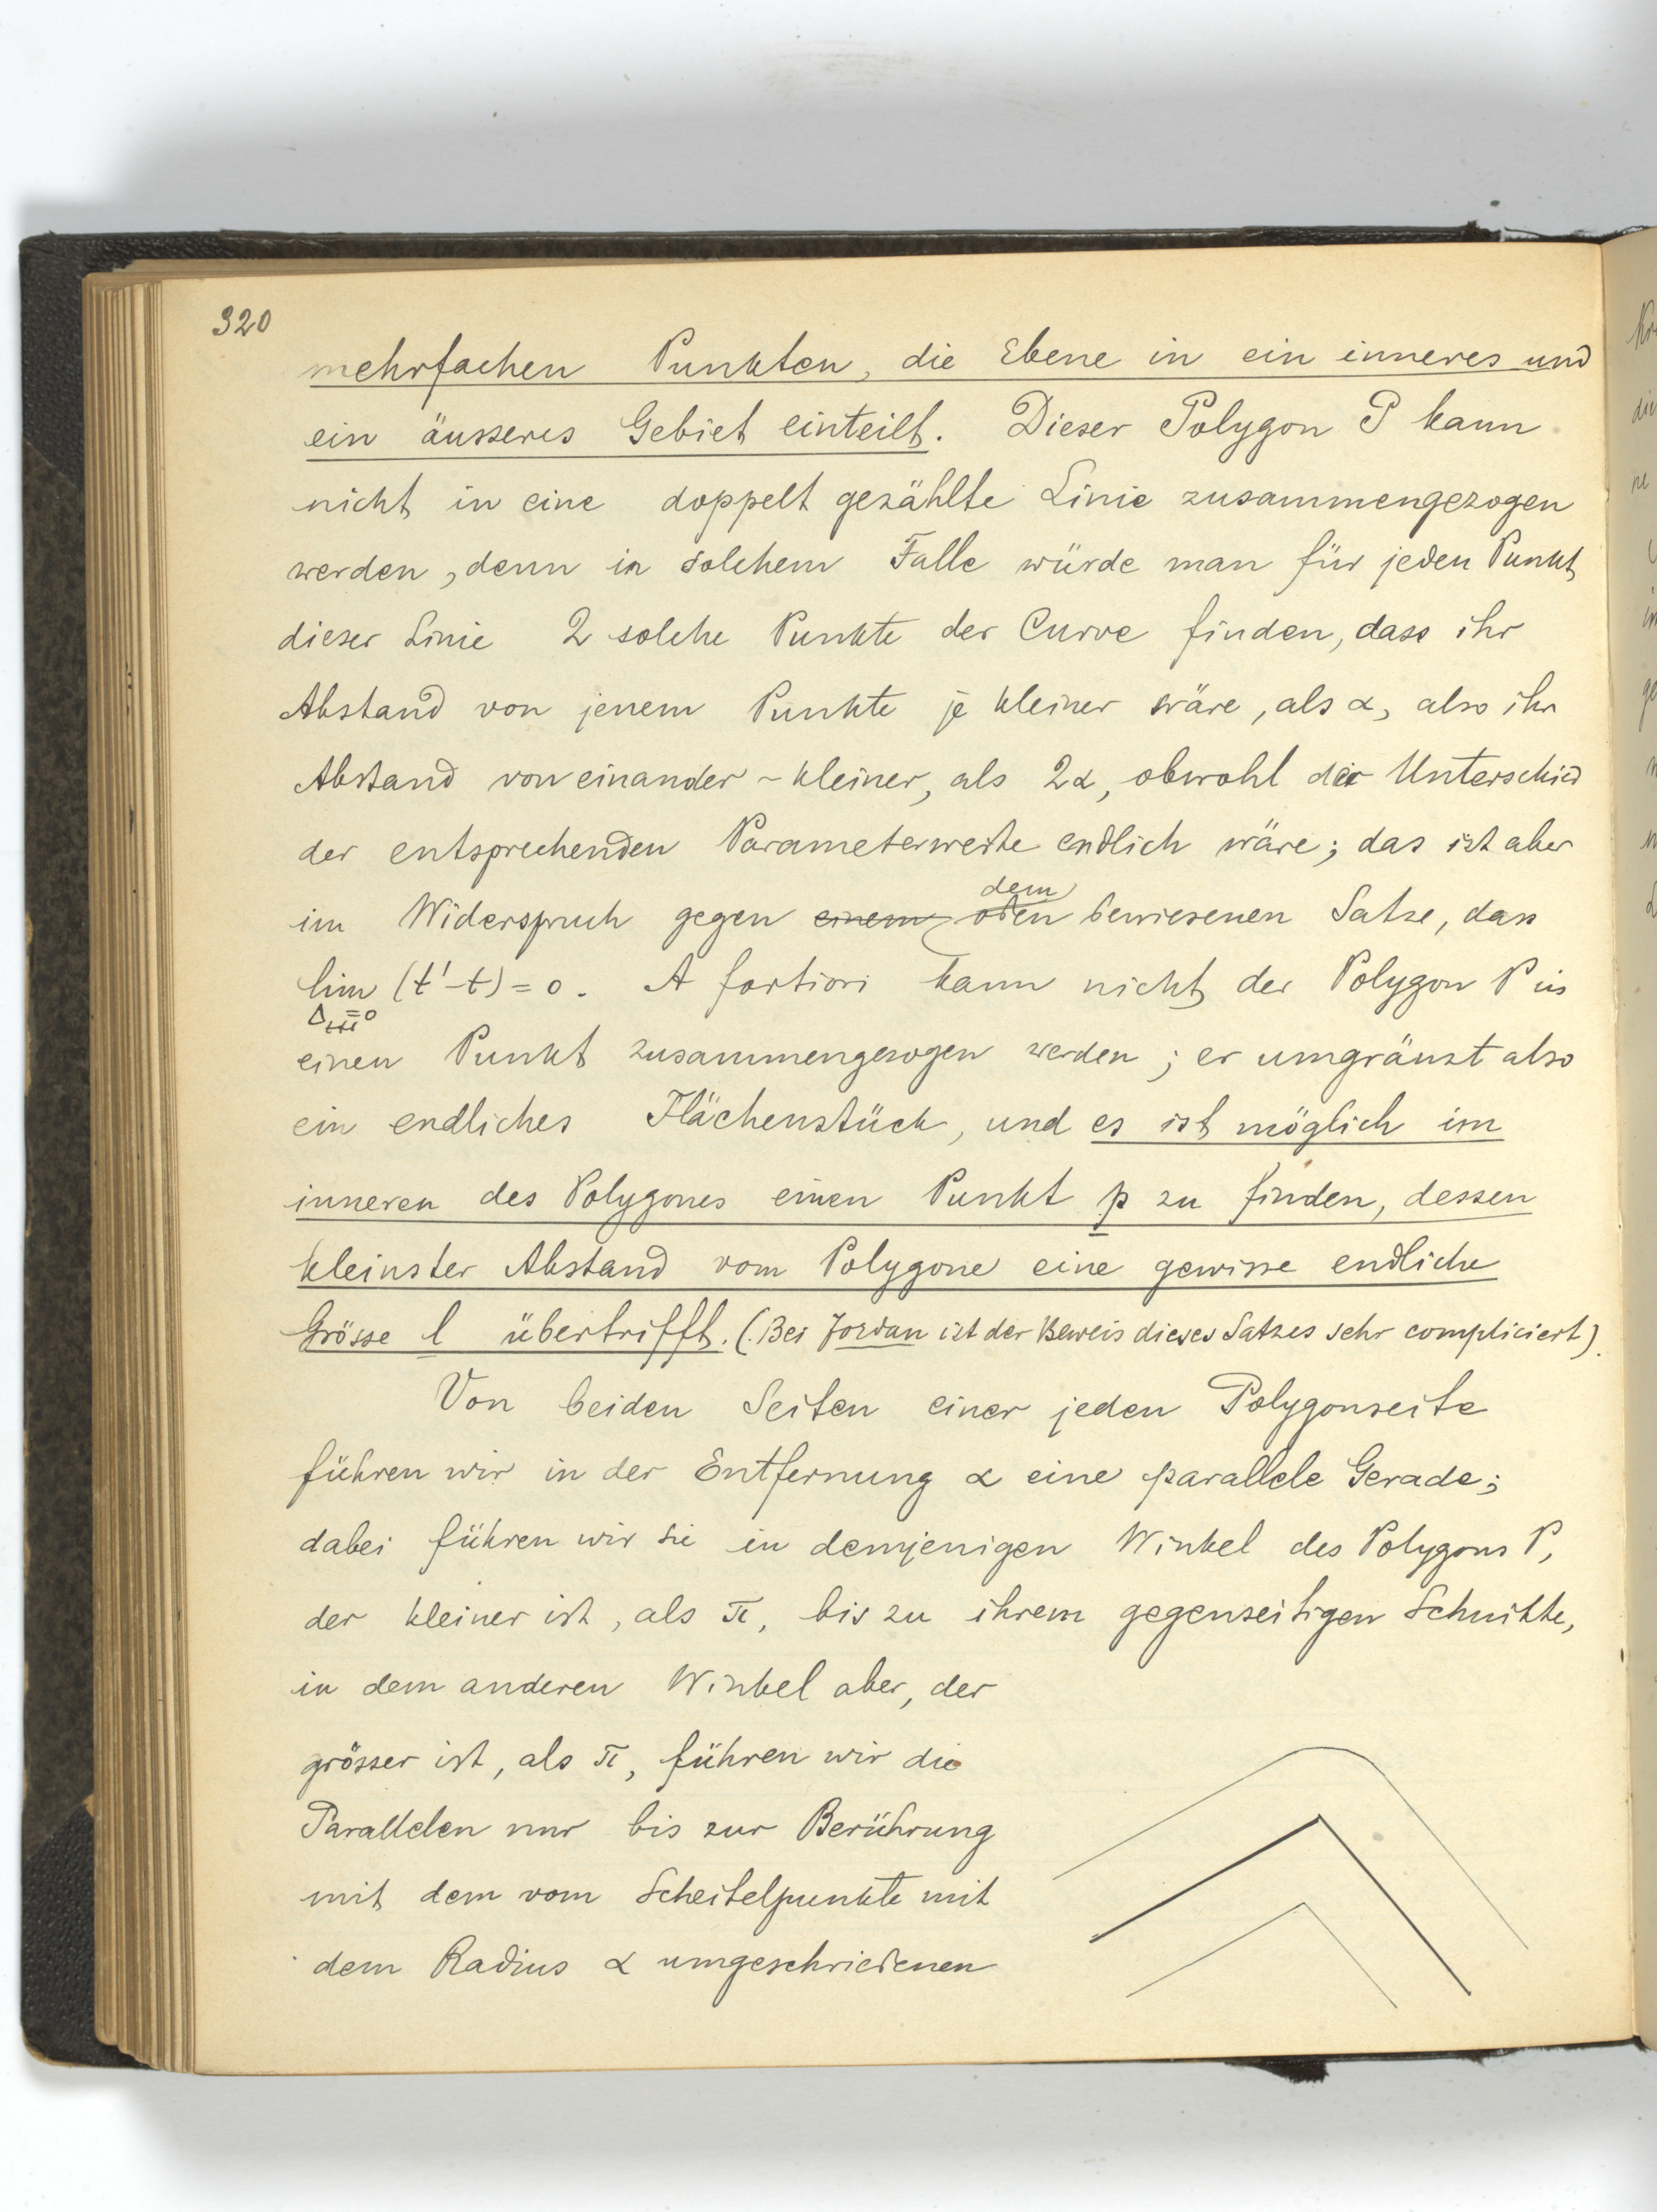 320
mehrfachen Punkten, die Ebene in ein inneres und
ein äusseres Gebiet einteilt. Dieser Polygon P kann
nicht in eine doppelt gezählte Linie zusammengezogen
werden, denn in solchem Falle würde man für jeden Punkt
dieser Linie 2 solche Punkte der Curve finden, dass ihr
Abstand von jenem Punkte je kleiner wäre, als α, also ihr
Abstand von einander – kleiner, als 2α, obwohl der Unterschied
der entsprechenden Parameterwerte endlich wäre; das ist aber
im Widerspruch gegen einem dem oben bewiesenen Satze, dass
lim (t'-t) = 0. A fortiori kann nicht der Polygon P in
einen Punkt zusammengezogen werden; er umgränzt also
ein endliches Flächenstück, und es ist möglich im
inneren des Polygones einen Punkt p zu finden, dessen
kleinster Abstand vom Polygone eine gewisse endliche
Grösse l übertrifft. (Bei Jordan ist der Beweis dieses Satzes sehr compliciert).
Von beiden Seiten einer jeden Polygonseite
führen wir in der Entfernung α eine parallele Gerade;
dabei führen wir sie in demjenigen Winkel des Polygons P,
der kleiner ist, als π, bis zu ihrem gegenseitigen Schnitte,
in dem anderen Winkel aber, der
grösser ist, als π, führen wir die
Parallelen nur bis zur Berührung
mit dem vom Scheitelpunkte mit
dem Radius α umgeschriebenen